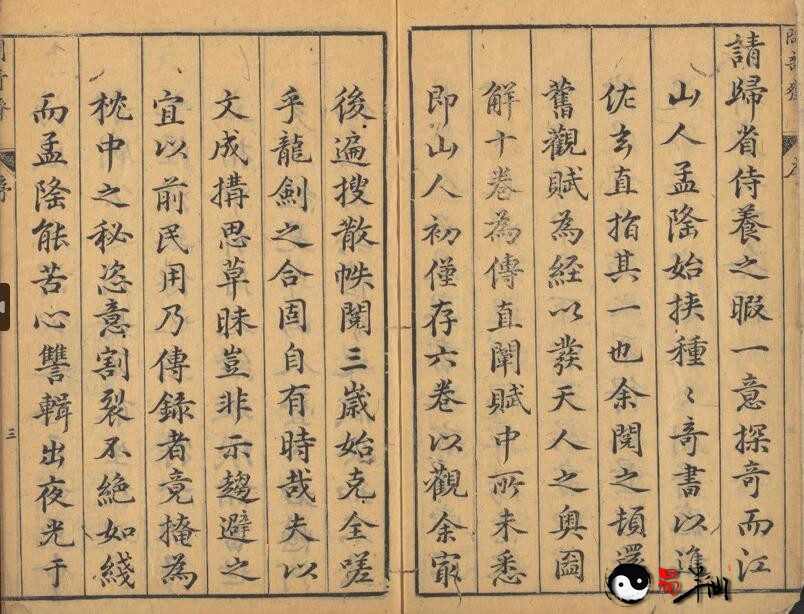 請歸省侍養之暇一意探奇而江
山人孟隆始挾種〻奇書以進
佐玄直指其一也余閱之頓還
舊觀賦為經以發天人之奧圖
解十卷為傳直闡賦中所未悉
即山人初僅存六卷以觀余寂
後遍搜散帙閱三歲始克全嗟
乎龍劍之合固自有時哉夫以
文成搆思草昧豈非示趨避之
宜以前民用乃傳錄者竟掩為
枕中之秘恣意割裂不絕如綫
而孟隆能苦心讐輯出夜光于
序
三
易